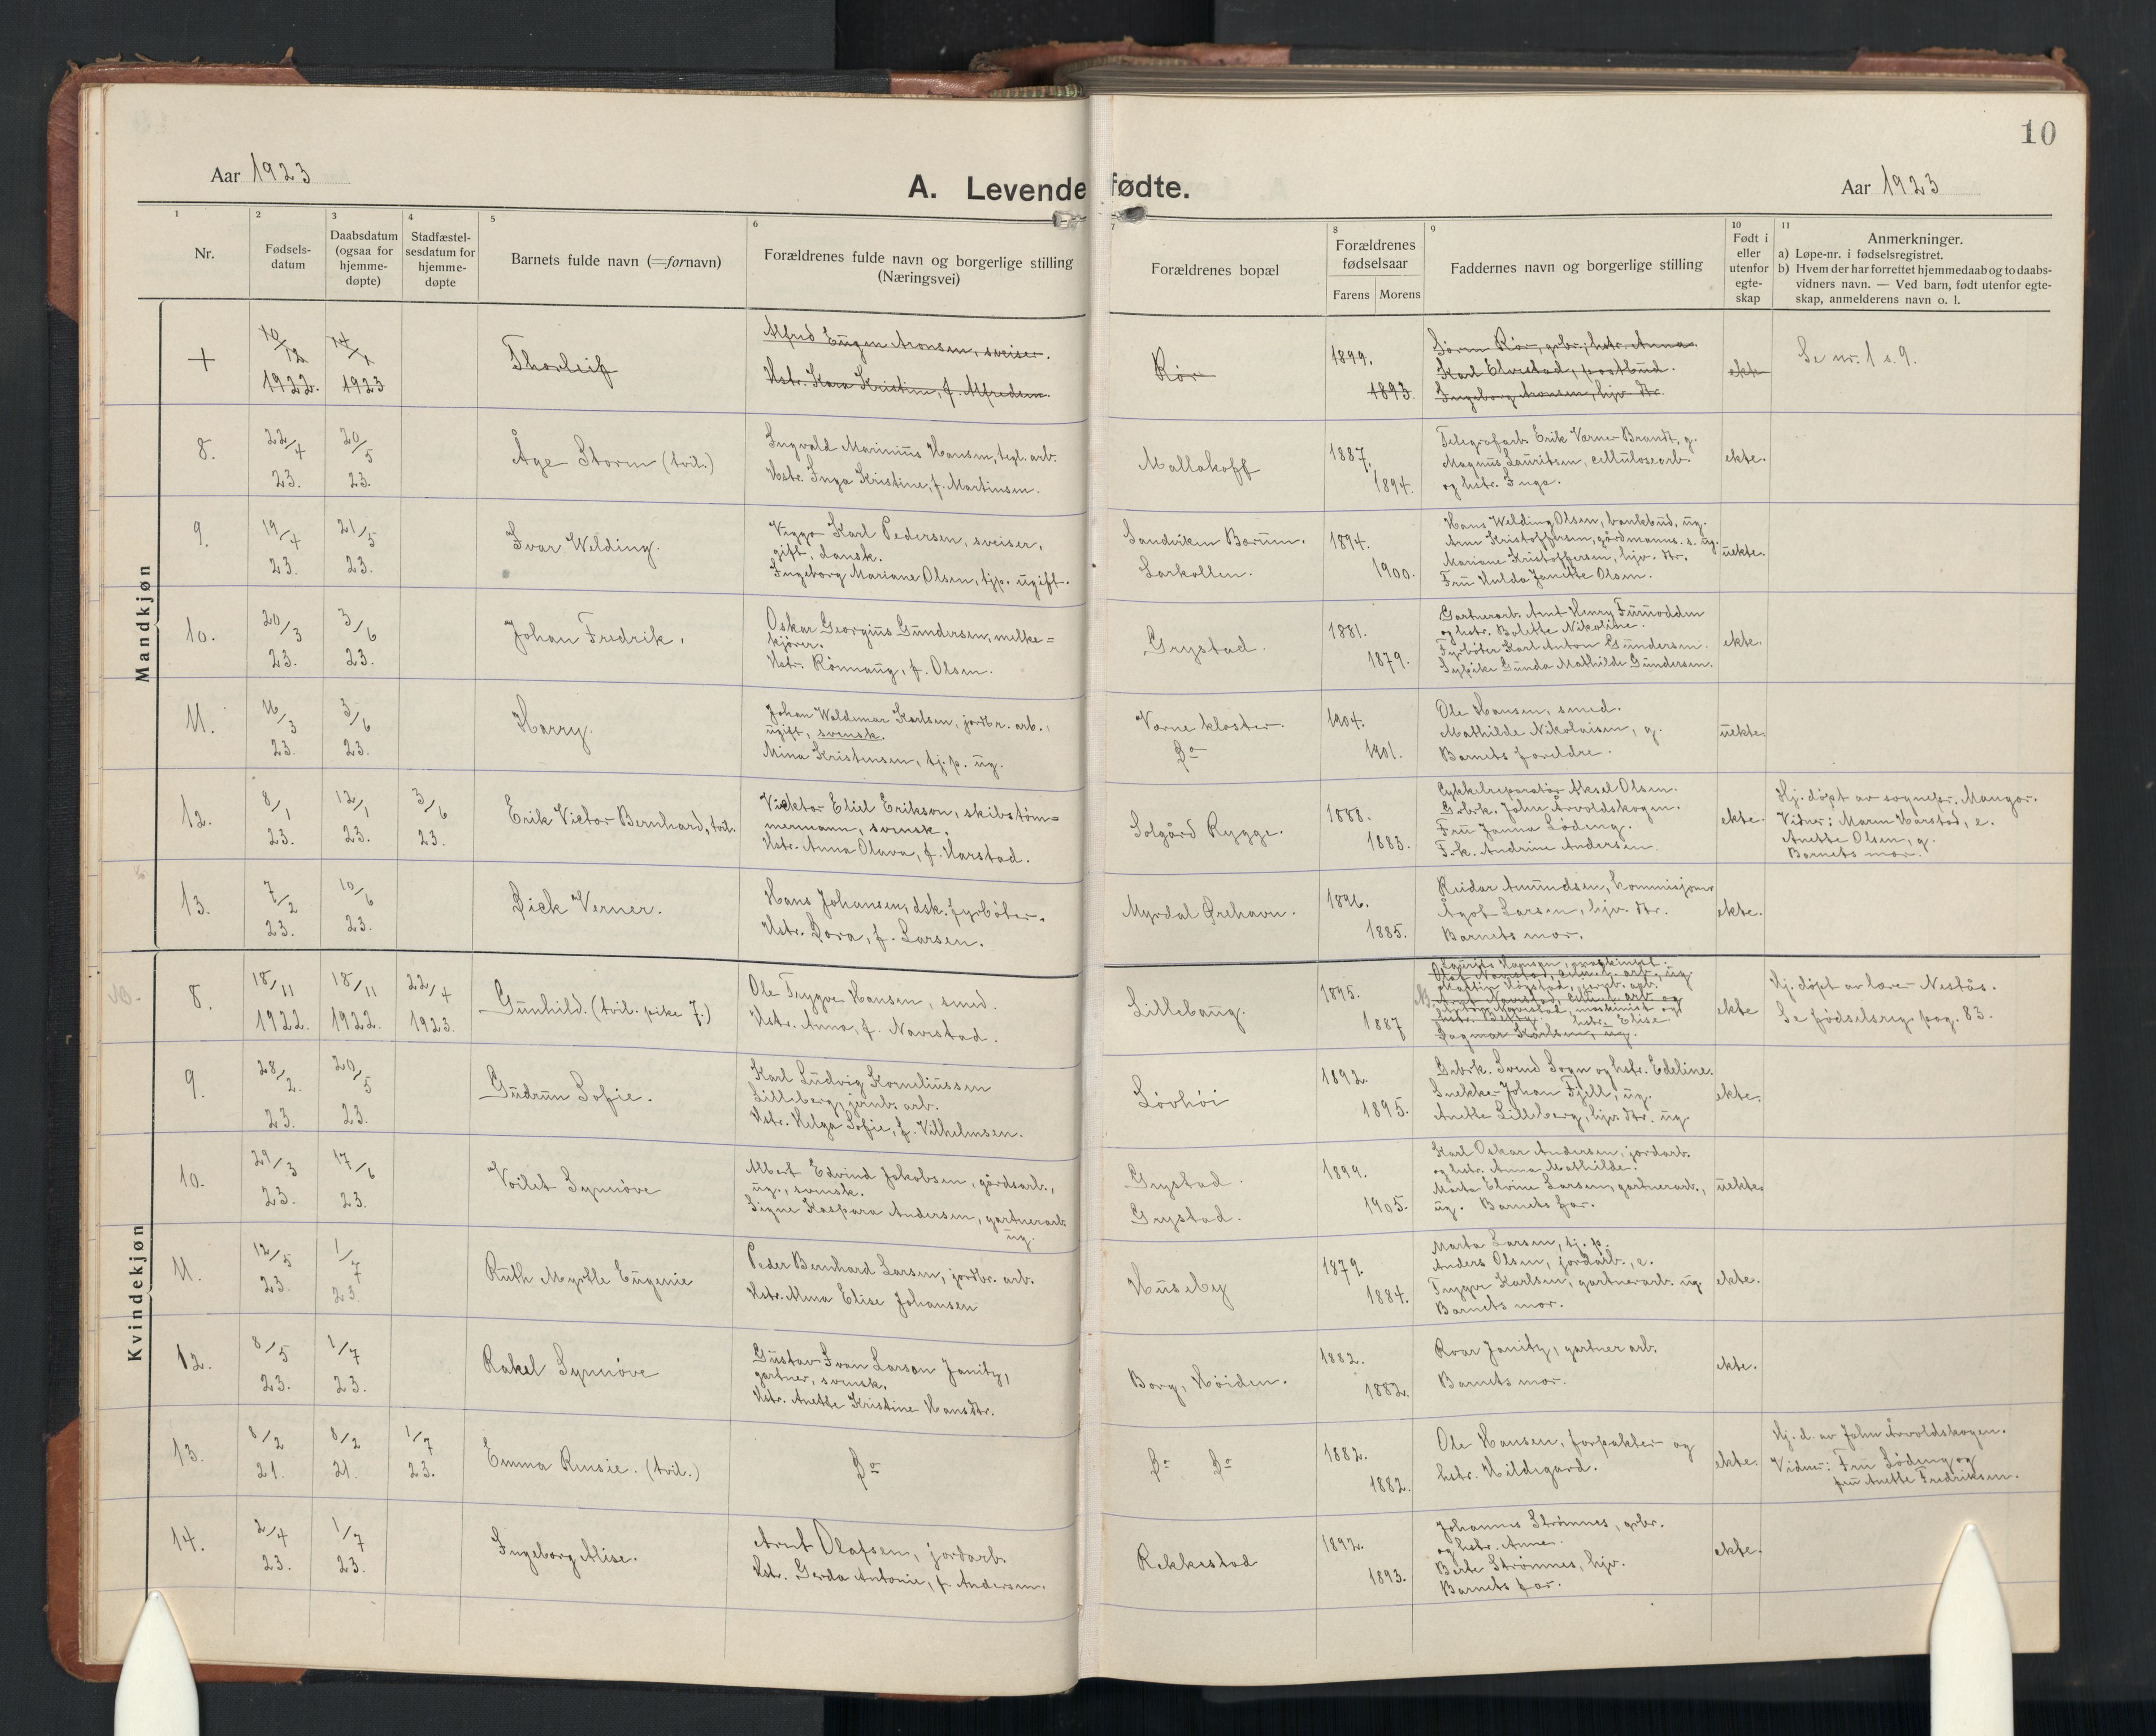 10
Aar 1923
A. Levendefødte.
Aar 1923
1 2 3 4 5 6 7 8 9 10 11
Nr.
Fødsels-
datum
Daabsdatum
(ogsaa for
hjemme-
døpte)
Stadfæstel-
sesdatum for
hjemme-
døpte
Barnets fulde navn (=fornavn)
Forældrenes fulde navn og borgerlige stilling
(Næringsvei)
Forældrenes bopæl
Forældrenes
fødselsaar
Farens Morens
Faddernes navn og borgerlige stilling
Født i
eller
utenfor
egte-
skap
Anmerkninger.
a) Løpe-nr. i fødselsregistret.
b) Hvem der har forrettet hjemmedaab og to daabs-
vidners navn. — Ved barn, født utenfor egte-
skap, anmelderens navn o. l.
Mandkjøn
+
10/12
1922.
14/1
1923
Thorleif
Alfred Eugen Aronsen, sveiser.
Hstr. Kara Kristine, f. Alfredsen.
Rör
1899.
1893.
Sören Rör, grbr., hstr. Anna
Karl Elvestad, postbud.
Ingeborg Aronsen, hjv. dtr.
ekte
Se nr. 1 s. 9.
8.
22/4
23.
20/5
23.
Åge Storm (tvil.)
Ingvald Marinius Hansen, tegl. arb.
Hstr. Inga Kristine, f. Martinsen.
Mallakoff
1887.
1894.
Telegrafarb. Erik Verner Brandt, g.
Magnus Lauritsen, cellulosearb.
og hstr. Inga.
ekte.
9.
19/4
23.
21/5
23.
Ivar Welding.
Viggo Karl Pedersen, sveiser,
gift, dansk.
Ingeborg Mariane Olsen, tjp. ugift.
Sandviken Bærum.
Larkollen.
1894.
1900.
Hans Welding Olsen, bankbud, ug.
Arne Kristoffersen, gårdmanns. s. ug.
Mariane Kristoffersen, hjv. dtr.
Fru Hulda Janette Olsen.
uekte.
10.
20/3
23.
3/6
23.
Johan Fredrik.
Oskar Georgius Gundersen, melke=
kjører.
Hstr. Rönnaug, f. Olsen.
Grystad.
1881.
1879.
Gartnerarb. Arnt Henry Furuodden
og hstr. Bolette Nikoline.
Fyrböter Karl Anton Gundersen.
Sypike Gunda Mathilde Gundersen.
ekte.
11.
16/3
23.
3/6
23.
Harry.
Johan Waldemar Karlsen, jordbr. arb.,
ugift, svensk.
Mina Kristensen, tj. p. ug.
Værne kloster.
Do
1904.
1901.
Ole Hansen, smed.
Mathilde Nikolaisen, g.
Barnets foreldre.
uekte.
12.
8/1
23.
12/1
23.
3/6
23.
Erik Victor Bernhard, tvil.
Vicktor Eliel Erikson, skibstöm=
mermann, svensk.
Hstr. Anna Olava, f. Harstad.
Solgård Rygge.
1888.
1883.
Cykkelreparatör Aksel Olsen.
Grbrk. John Årvoldskogen.
Fru Janna Löding.
Frk. Andrine Andersen.
ekte.
Hj. döpt av sognepr. Mangor.
Vidner: Maren Harstad, e.
Anette Olsen, g.
Barnets mor.
13.
7/2
23.
10/6
23.
Dick Verner.
Hans Johansen, dsk. fyrböter.
Hstr. Dora, f. Larsen.
Myrdal Ørehavn.
1896.
1885.
Reidar Amundsen, kommisjonær
Ågot Larsen, hjv. dtr.
Barnets mor.
ekte.
Kvindekjøn
8.
18/11
1922.
18/11
1922.
22/4
1923.
Gunhild. (tvil. pike 7.)
Ole Trygve Hansen, smed.
Hstr. Anna, f. Navestad.
Lillebaug.
1895.
1887
hstr. Elise.
Dagmar Karlsen, ug.
ekte
Hj. döpt av lærer Nestås.
Se födselsreg. pag. 83.
9.
28/2.
23.
20/5
23.
Gudrun Sofie.
Karl Ludvig Korneliussen
Lilleberg, jernb. arb.
Hstr. Helga Sofie, f. Vilhelmsen.
Lövhöi
1892.
1895.
Grbrk. Svend Sogn og hstr. Edeline.
Snekker Johan Fjell, ug.
Anette Lilleberg, hjv. dtr. ug.
ekte.
10.
29/3
23.
17/6
23.
Voilet Synnöve
Albert Edvind Jakobsen, gårdsarb.,
ug., svensk.
Signe Kaspara Andersen, gartnerarb.
ug.
Grystad.
Grystad.
1899.
1905.
Karl Oskar Andersen, jordarb.
og hstr. Anna Mathilde.
Marta Elvine Larsen, gartnerarb.,
ug. Barnets far.
uekte
11.
12/5
23.
1/7
23.
Ruth Myrtle Eugenie
Peder Bernhard Larsen, jordbr. arb.
Hstr. Alma Elise Johansen
Huseby
1879.
1884.
Marta Larsen, tj. p.
Anders Olsen, jordarb., e.
Trygve Karlsen, gartnerarb. ug.
Barnets mor.
ekte.
12.
8/5
23.
1/7
23.
Rakel Synnöve
Gustav Ivan Larson Janitz,
gartner, svensk.
Hstr. Anette Kristine Hansdtr.
Borg, Höiden.
1882.
1882.
Roar Janitz, gartner arb.
Barnets mor.
ekte.
13.
8/2
21.
8/2
21.
1/7
23.
Emma Rensie. (tvil.)
Do
Do Do
1882.
1882.
Ole Hansen, forpakter og
hstr. Hildegard.
ekte.
Hj. d. av John Årvoldskogen.
Vidner: Fru Löding og
fru Anette Fredriksen.
14.
2/4
23.
1/7
23.
Ingeborg Alise.
Arnt Olafsen, jordarb.
Hstr. Gerda Antonie, f. Andersen.
Rekkestad
1892.
1893.
Johannes Strömnes, grbr.
og hstr. Anna.
Berte Strömnes, hjv.
Barnets far.
ekte.